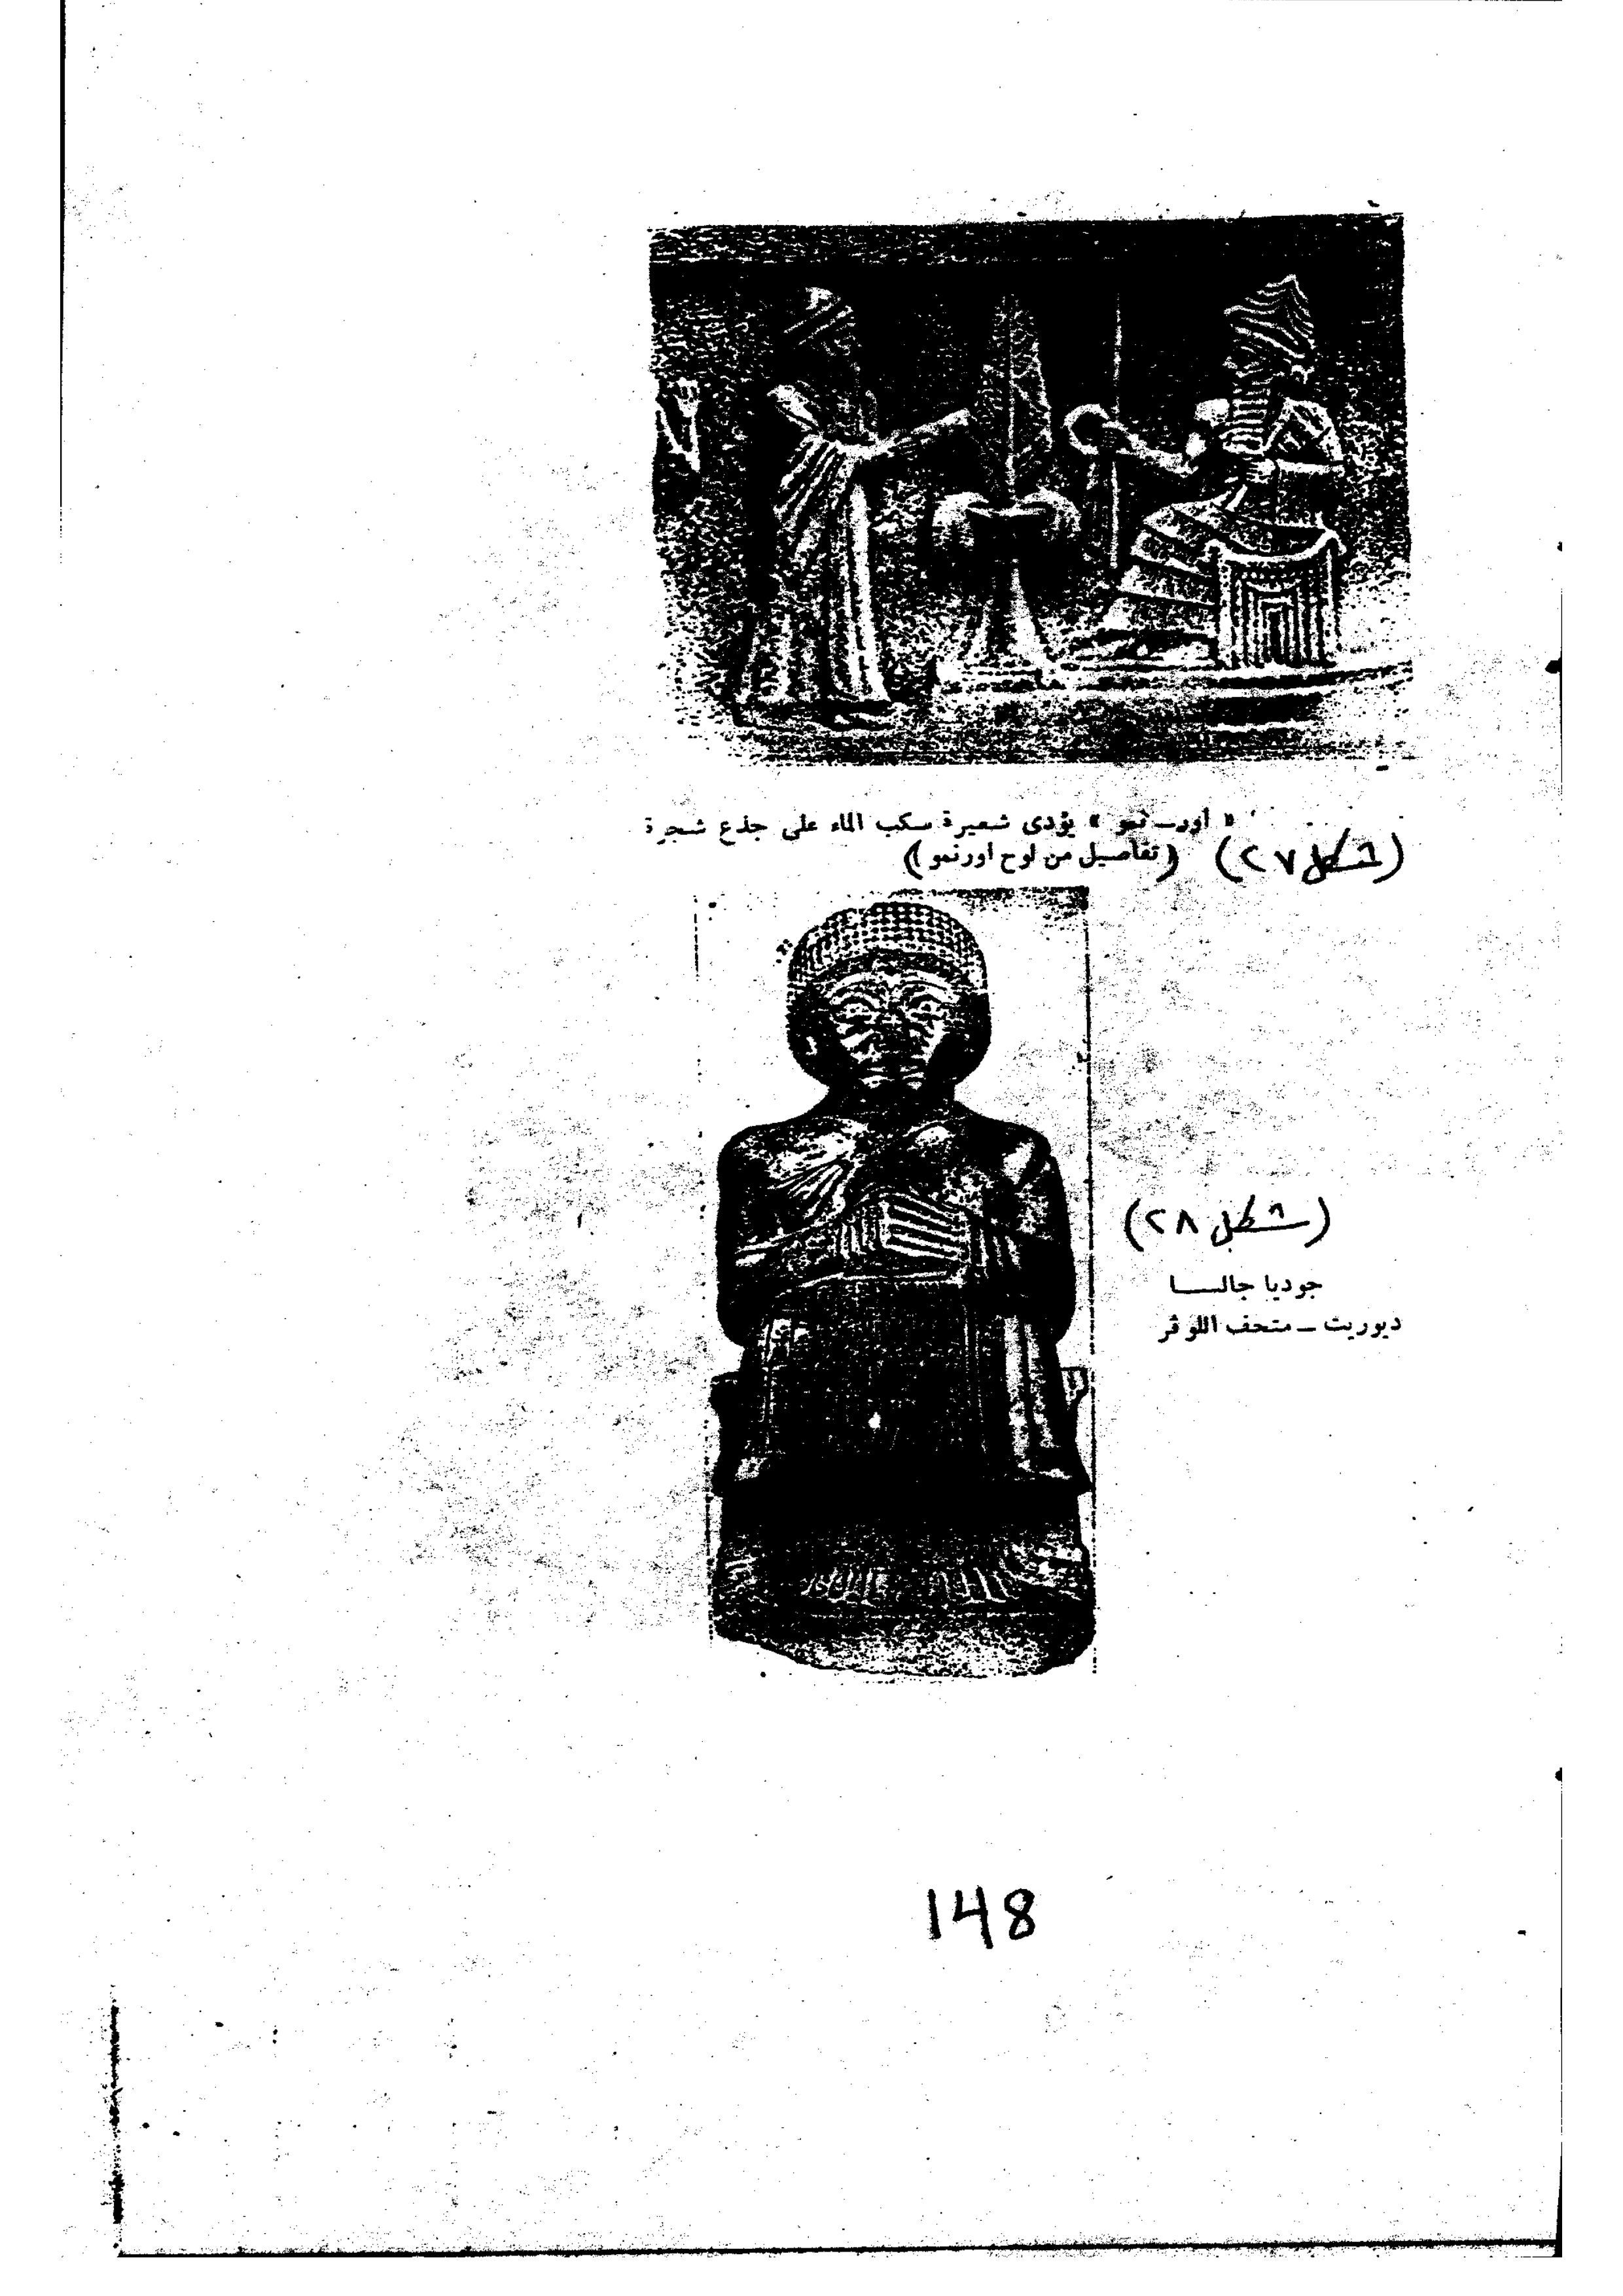 « أور ـ نمو » يؤدى شعيرة سكب الماء على جذع شجرة
(شكل ٢٧) (تفاصيل من لوح أورنمو)
(شكل ٢٨)
جوديا جالسا
ديوريت ـ متحف اللوڤر
148